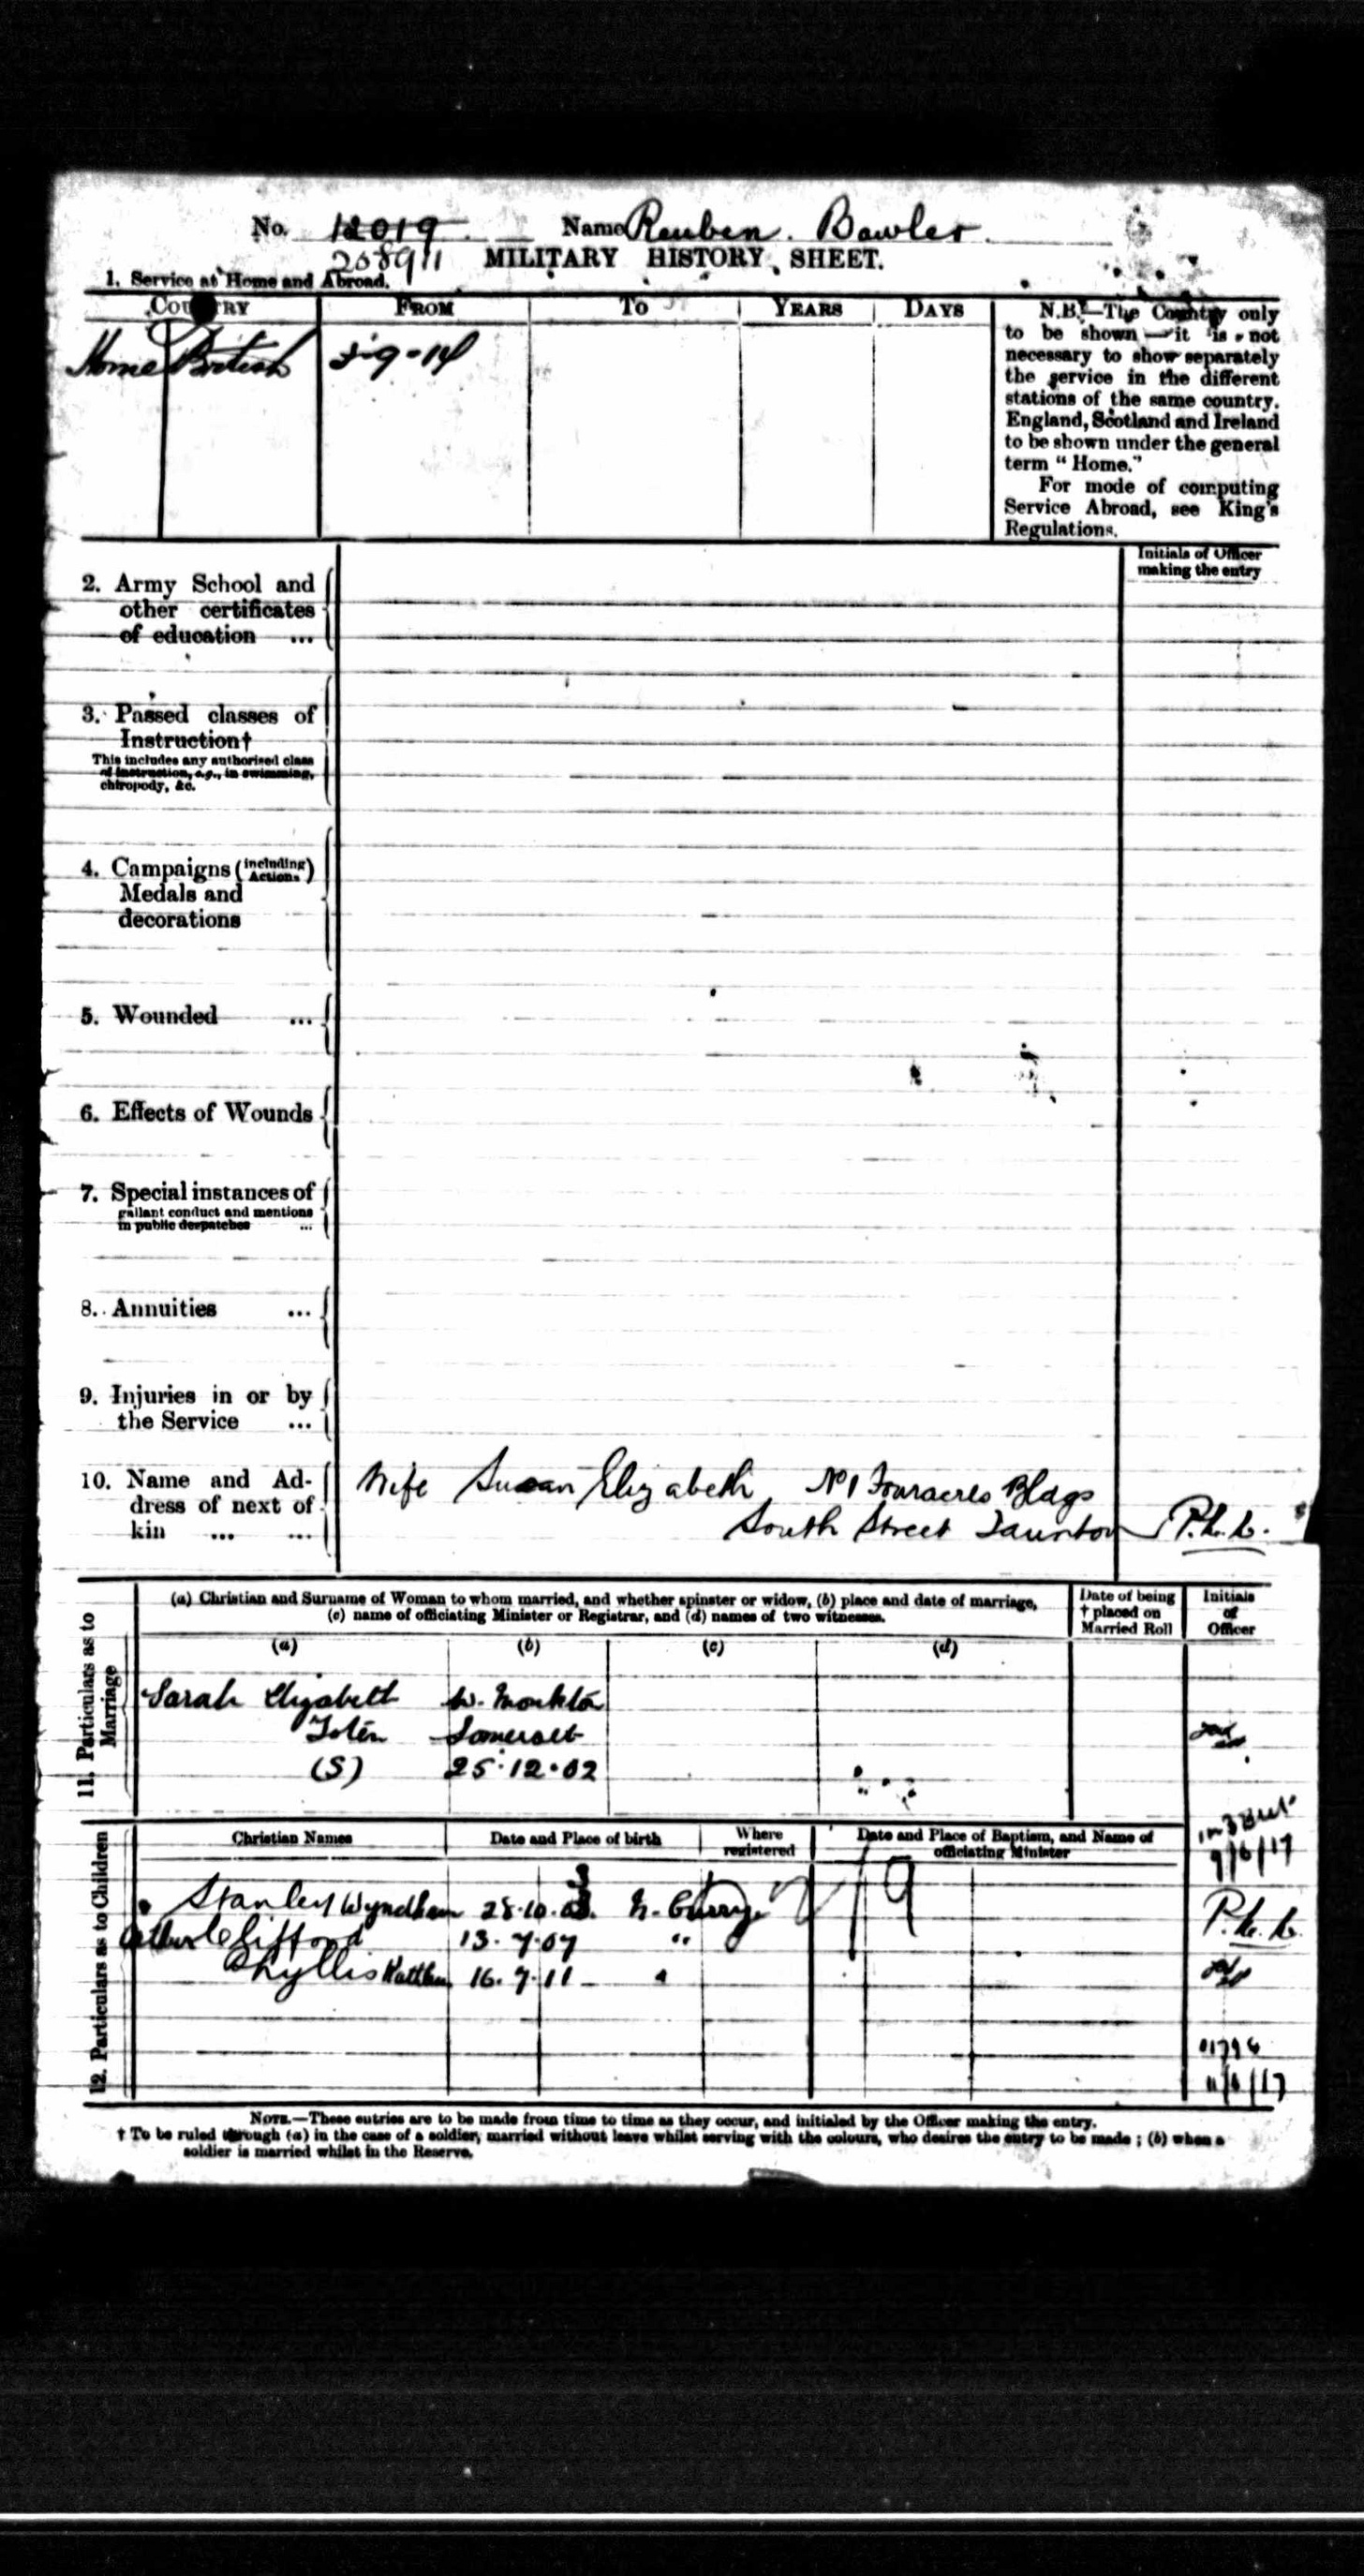 No. 12019 Name Reuben Bowler
208911 MILITARY HISTORY SHEET.
1. Service at Home and Abroad.
COUNTRY FROM TO YEARS DAYS
Home British 3-9-14
N.B.—The Country only
to be shown—it is not
necessary to show separately
the service in the different
stations of the same country.
England, Scotland and Ireland
to be shown under the general
term "Home."
For mode of computing
Service Abroad, see King's
Regulations.
Initials of Officer
making the entry
2. Army School and
other certificates
of education ...
3. Passed classes of
Instruction†
This includes any authorised class
of instruction, e.g., in swimming,
chiropody, &c.
4. Campaigns (including Actions)
Medals and
decorations
5. Wounded ...
6. Effects of Wounds
7. Special instances of
gallant conduct and mentions
in public despatches ...
8. Annuities ...
9. Injuries in or by
the Service ...
10. Name and Ad-
dress of next of
kin ... ...
Wife Susan Elizabeth No 1 Fouracres Bldgs
South Street Taunton
11. Particulars as to
Marriage
(a) Christian and Surname of Woman to whom married, and whether spinster or widow, (b) place and date of marriage,
(c) name of officiating Minister or Registrar, and (d) names of two witnesses.
Date of being
† placed on
Married Roll
Initials
of
Officer
(a) (b) (c) (d)
Sarah Elizabeth W. Monkton
Somerset
(S) 25.12.02
12. Particulars as to Children
Christian Names Date and Place of birth Where
registered
Date and Place of Baptism, and Name of
officiating Minister
9/6/17
Stanley Wyndham 28.10.03. N. Curry
Clifford 13.7.07 "
Phyllis 16.7.11 "
11/6/17
NOTE.—These entries are to be made from time to time as they occur, and initialed by the Officer making the entry.
† To be ruled through (a) in the case of a soldier, married without leave whilst serving with the colours, who desires the entry to be made; (b) when a
soldier is married whilst in the Reserve.